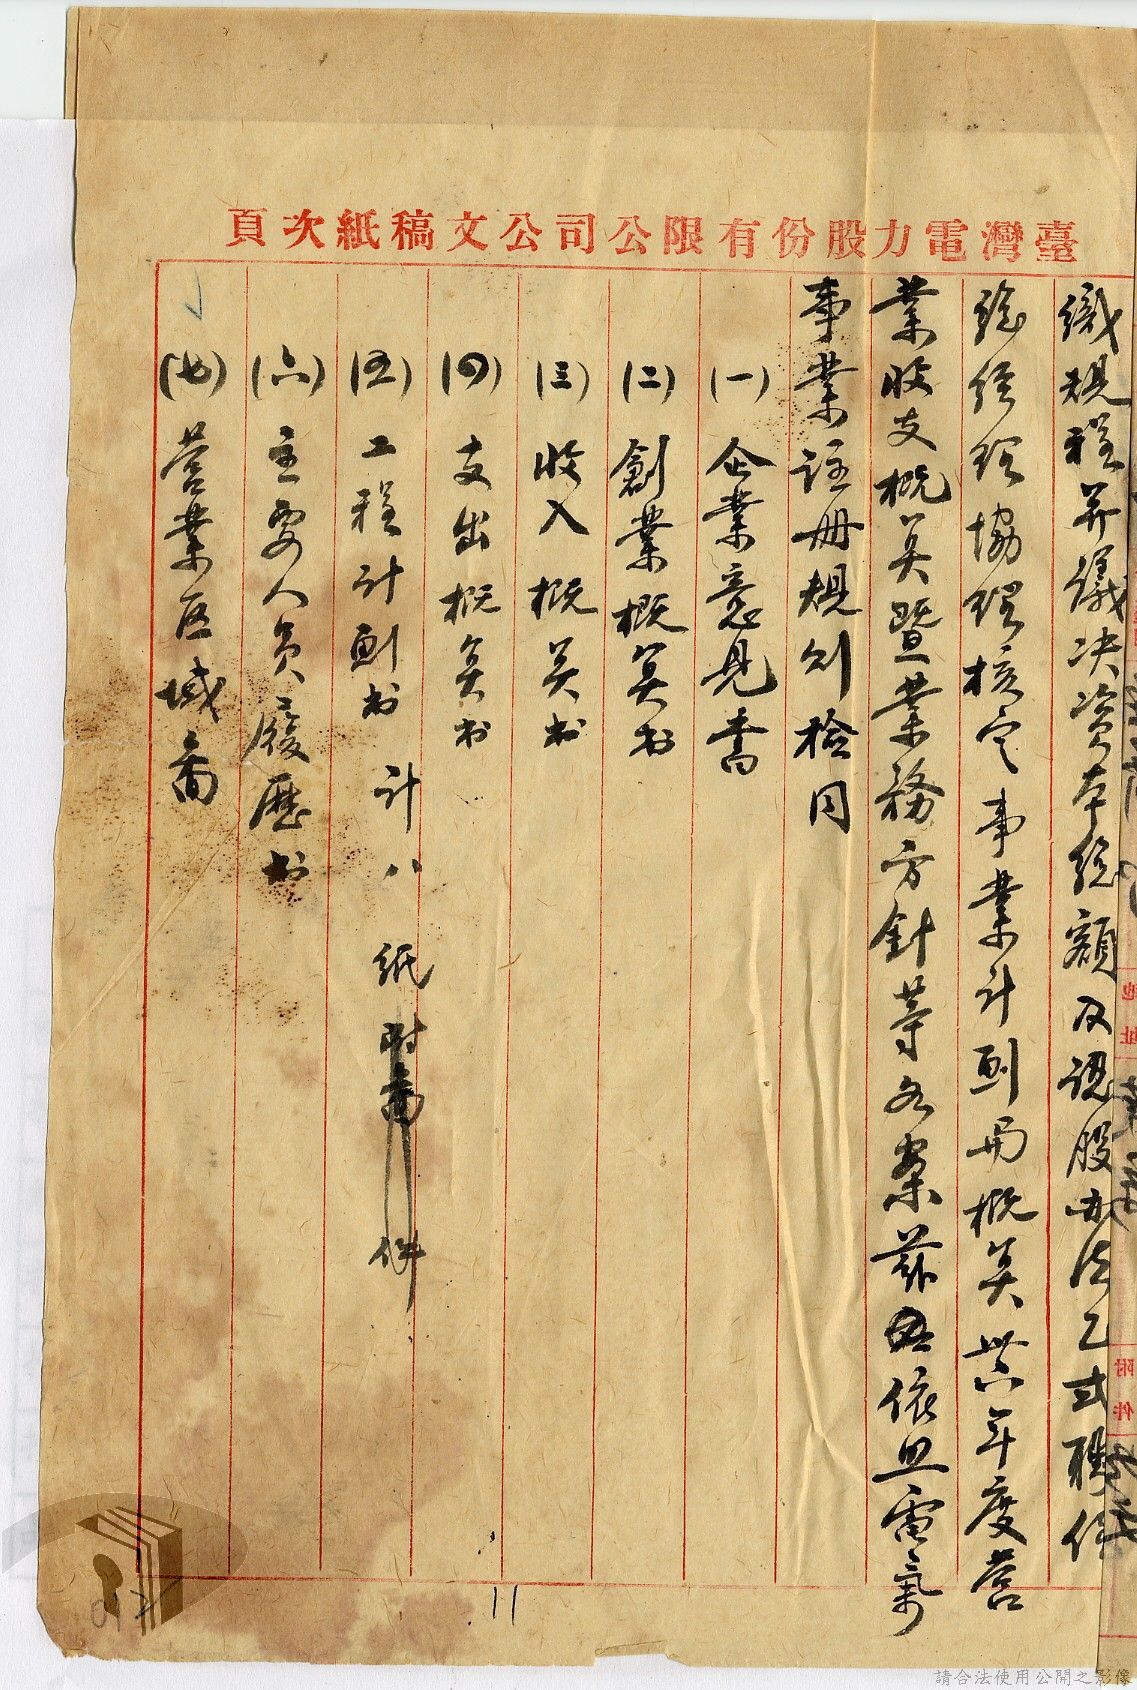 臺灣電力股份有限公司公文稿紙次頁
織規程并議决資本總額及認股办法乙式聘任
總經理協理核定事業計劃用概算卅六年度营
業收支概算暨業務方針等各案茲依照電氣
事業註册規則檢同
(一) 企業意見書
(二) 創業概算书
(三) 收入概算书
(四) 支出概算书
(五) 工程計劃书 計八紙附圖 件
(六) 主要人員履歷书
(七) 营業区域圖
地址
附件
11
請合法使用公開之影像